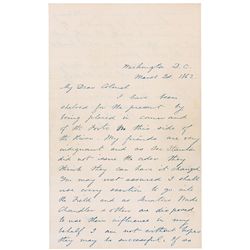 Washington D.C.
March 2d, 1862.
My Dear Colonel
I have been
shelved for the present by
being placed in command
of the Forts on this side of
the River. My friends are very
indignant and as Sec Stanton
did not issue the order they
think they can have it changed.
You may rest assured I shall
use every exertion to go into
the Field and as Senators Wade
Chandler & others are disposed
to use their influence in my
behalf I am not without hopes
they may be successful. If so